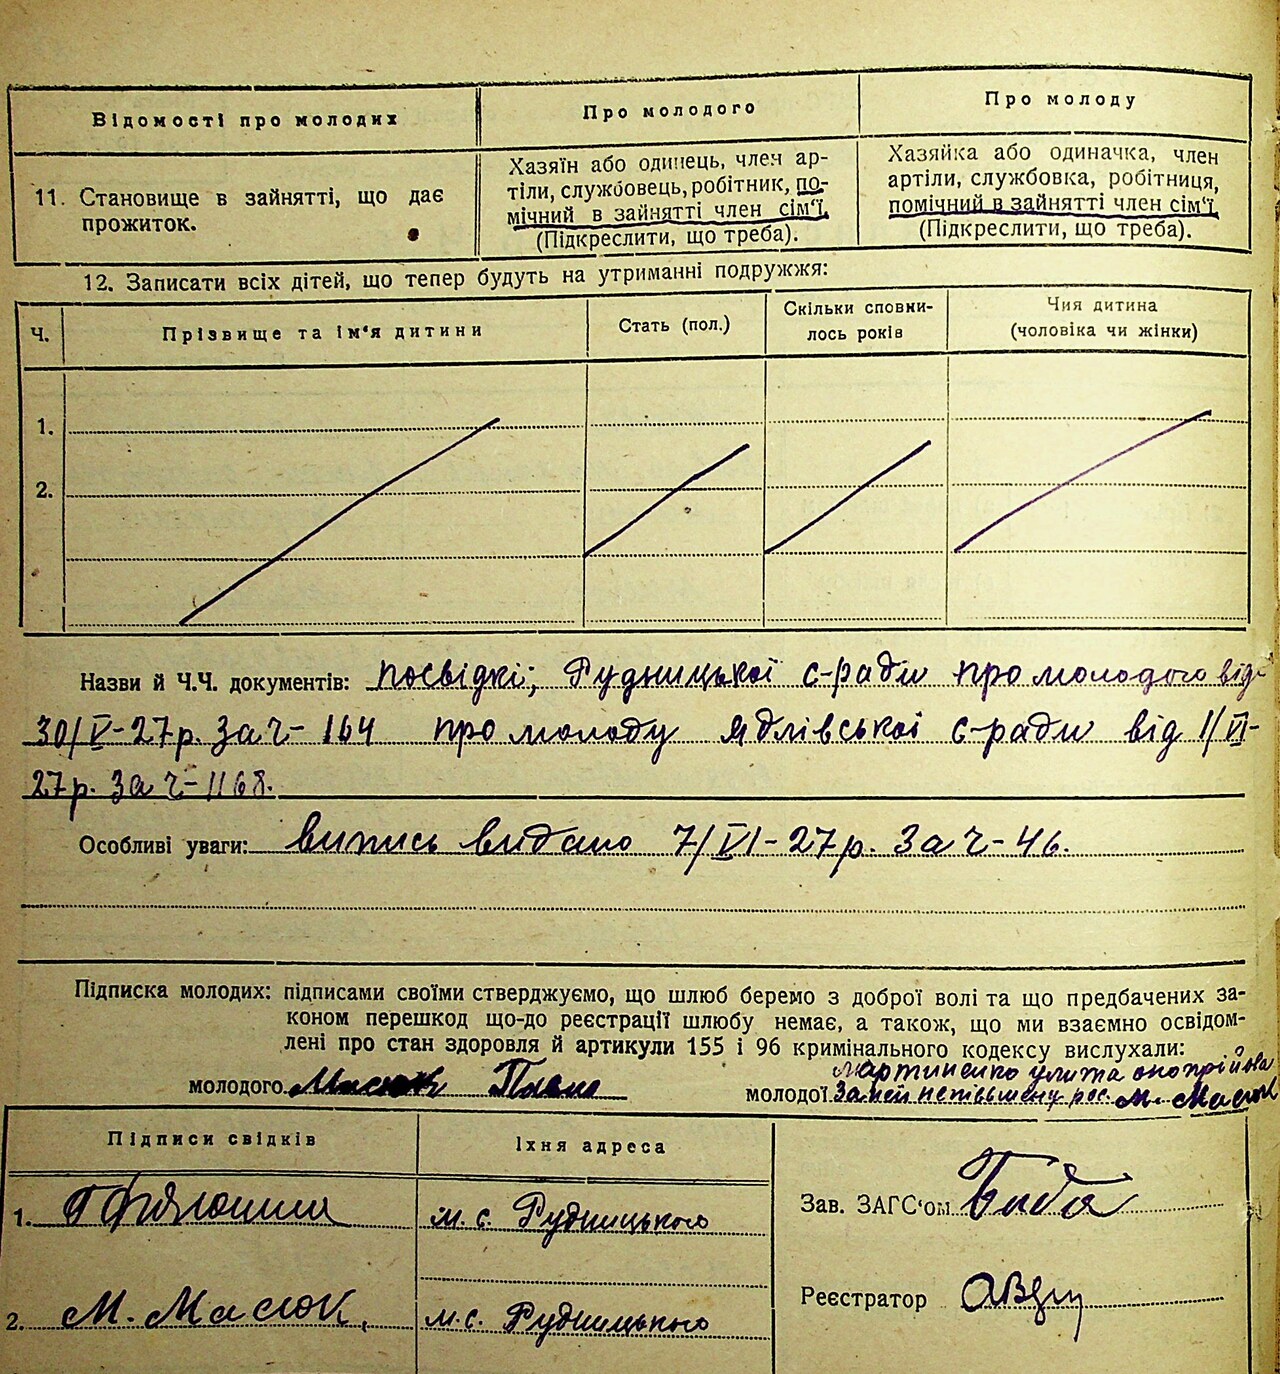 Відомості про молодих
Про молодого
Про молоду
11. Становище в зайнятті, що дає
прожиток.
Хазяїн або одинець, член ар-
тілі, службовець, робітник, по-
мічний в зайнятті член сім'ї.
(Підкреслити, що треба).
Хазяйка або одиначка, член
артілі, службовка, робітниця,
помічний в зайнятті член сім'ї.
(Підкреслити, що треба).
12. Записати всіх дітей, що тепер будуть на утриманні подружжя:
Ч.
Прізвище та ім'я дитини
Стать (пол.)
Скільки сповни-
лось років
Чия дитина
(чоловіка чи жінки)
1.
2.
Назви й Ч.Ч. документів: посвідкі; Рудницької с-ради про молодого від
30/V-27р. за ч-164 про молоду Ядлівської с-ради від 1/VI-
27р. за ч-1168.
Особливі уваги: випись видано 7/VI-27р. за ч-46.
Підписка молодих: підписами своїми стверджуємо, що шлюб беремо з доброї волі та що предбачених за-
коном перешкод що-до реєстрації шлюбу немає, а також, що ми взаємно освідом-
лені про стан здоровля й артикули 155 і 96 кримінального кодексу вислухали:
молодого Масюк Павло
мартиненко улита онопрійова
молодої За неї непісьмену рос. М. Масюк
Підписи свідків
Їхня адреса
1.
м. с. Рудницького
Зав. ЗАГС'ом Биба
2. М. Масюк,
м. с. Рудницького
Реєстратор